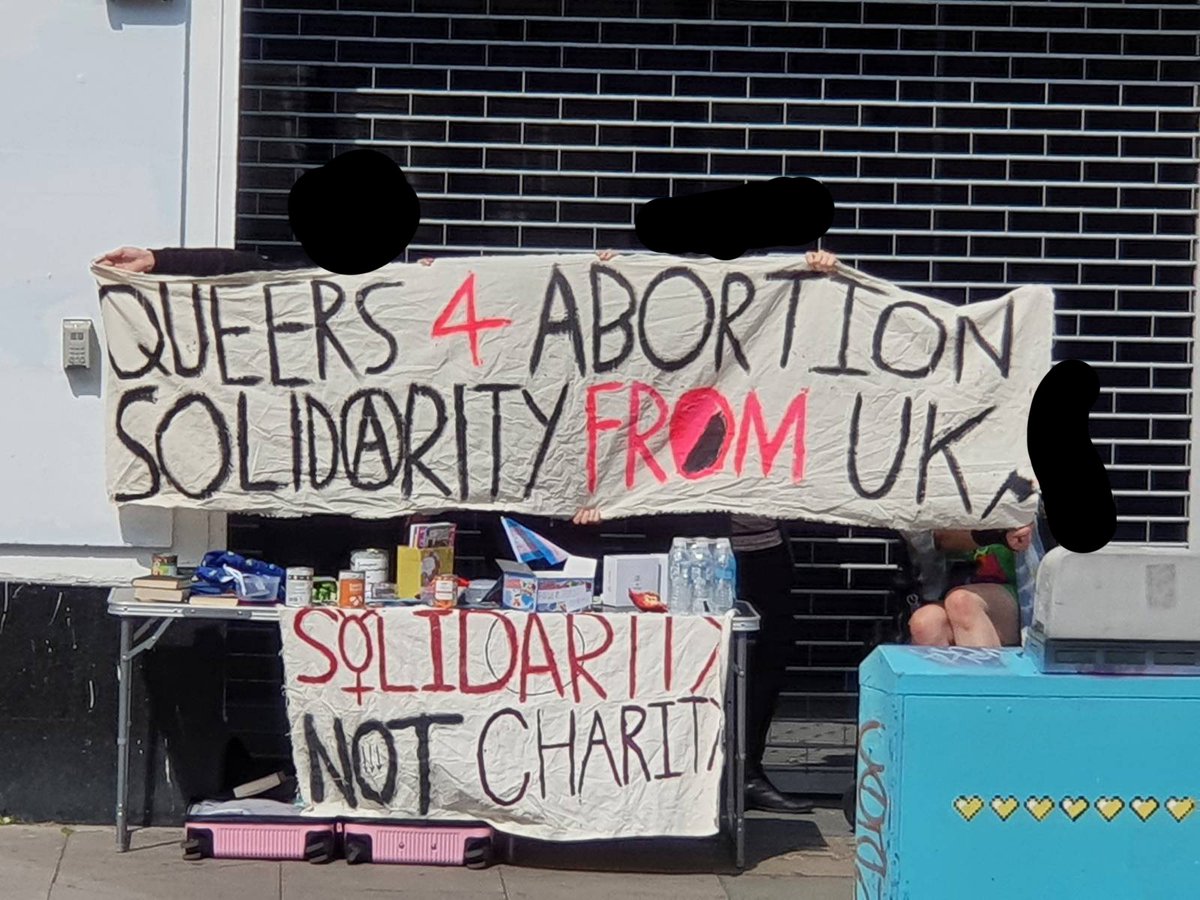 QUEERS 4 ABORTION
SOLIDARITY FROM UK,
SOLIDARITY
NOT CHARITY